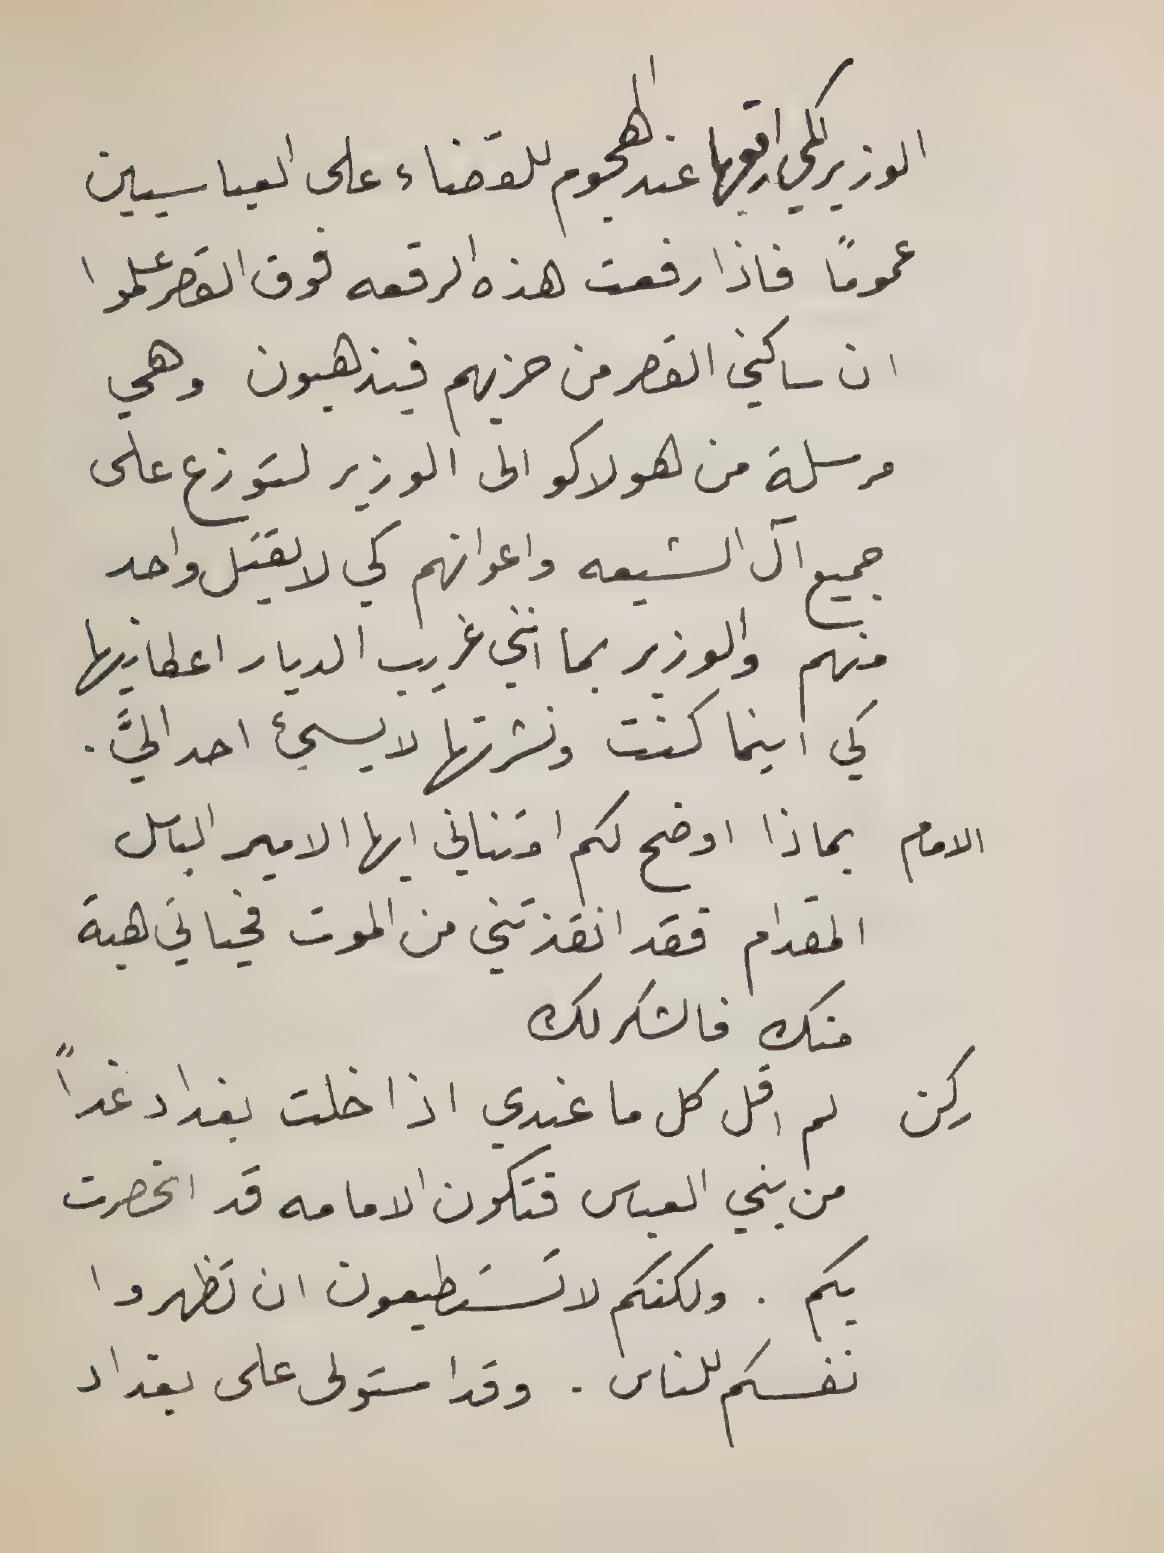 الوزير لكي ارفعها عند الهجوم للقضاء على العباسيين
عموماً فاذا رفعت هذه الرقعه فوق القصر علموا
ان ساكني القصر من حزبهم فيذهبون وهي
مرسلة من هولاكو الى الوزير لتوزع على
جميع آل الشيعه واعوانهم كي لا يقتل واحد
منهم والوزير بما انني غريب الديار اعطانيها
كي اينما كنت ونشرتها لا يسيئ احد اليَّ .
الامام بماذا اوضح لكم امتناني ايها الامير الباسل
المقدام فقد انقذتني من الموت فحياتي هبة
منك فالشكر لك
ركن لم اقل كل ما عندي اذا خلت بغداد غداً
من بني العباس فتكون الامامه قد انحصرت
بكم . ولكنكم لا تستطيعون ان تظهروا
نفسكم للناس . وقد استولى على بغداد